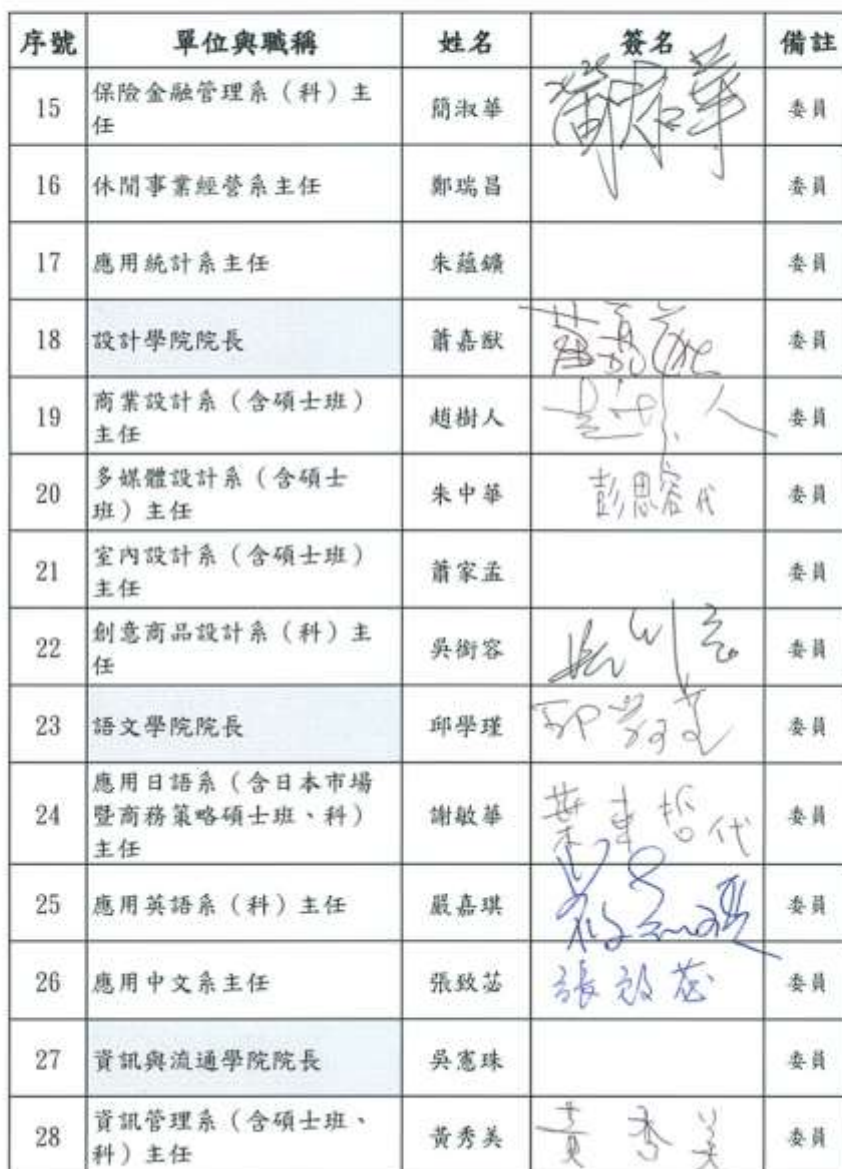 序號 單位與職稱 姓名 簽名 備註
15 保險金融管理系（科）主
任 簡淑華 簡淑華 委員
16 休閒事業經營系主任 鄭瑞昌 委員
17 應用統計系主任 朱蘊鑛 委員
18 設計學院院長 蕭嘉猷 蕭嘉猷 委員
19 商業設計系（含碩士班）
主任 趙樹人 趙樹人 委員
20 多媒體設計系（含碩士
班）主任 朱中華 彭思容代 委員
21 室內設計系（含碩士班）
主任 蕭家孟 委員
22 創意商品設計系（科）主
任 吳衡容 委員
23 語文學院院長 邱學瑾 邱學瑾 委員
24 應用日語系（含日本市場
暨商務策略碩士班、科）
主任 謝敏華 葉東哲代 委員
25 應用英語系（科）主任 嚴嘉琪 嚴嘉琪 委員
26 應用中文系主任 張致苾 張致苾 委員
27 資訊與流通學院院長 吳憲珠 委員
28 資訊管理系（含碩士班、
科）主任 黃秀美 黃秀美 委員